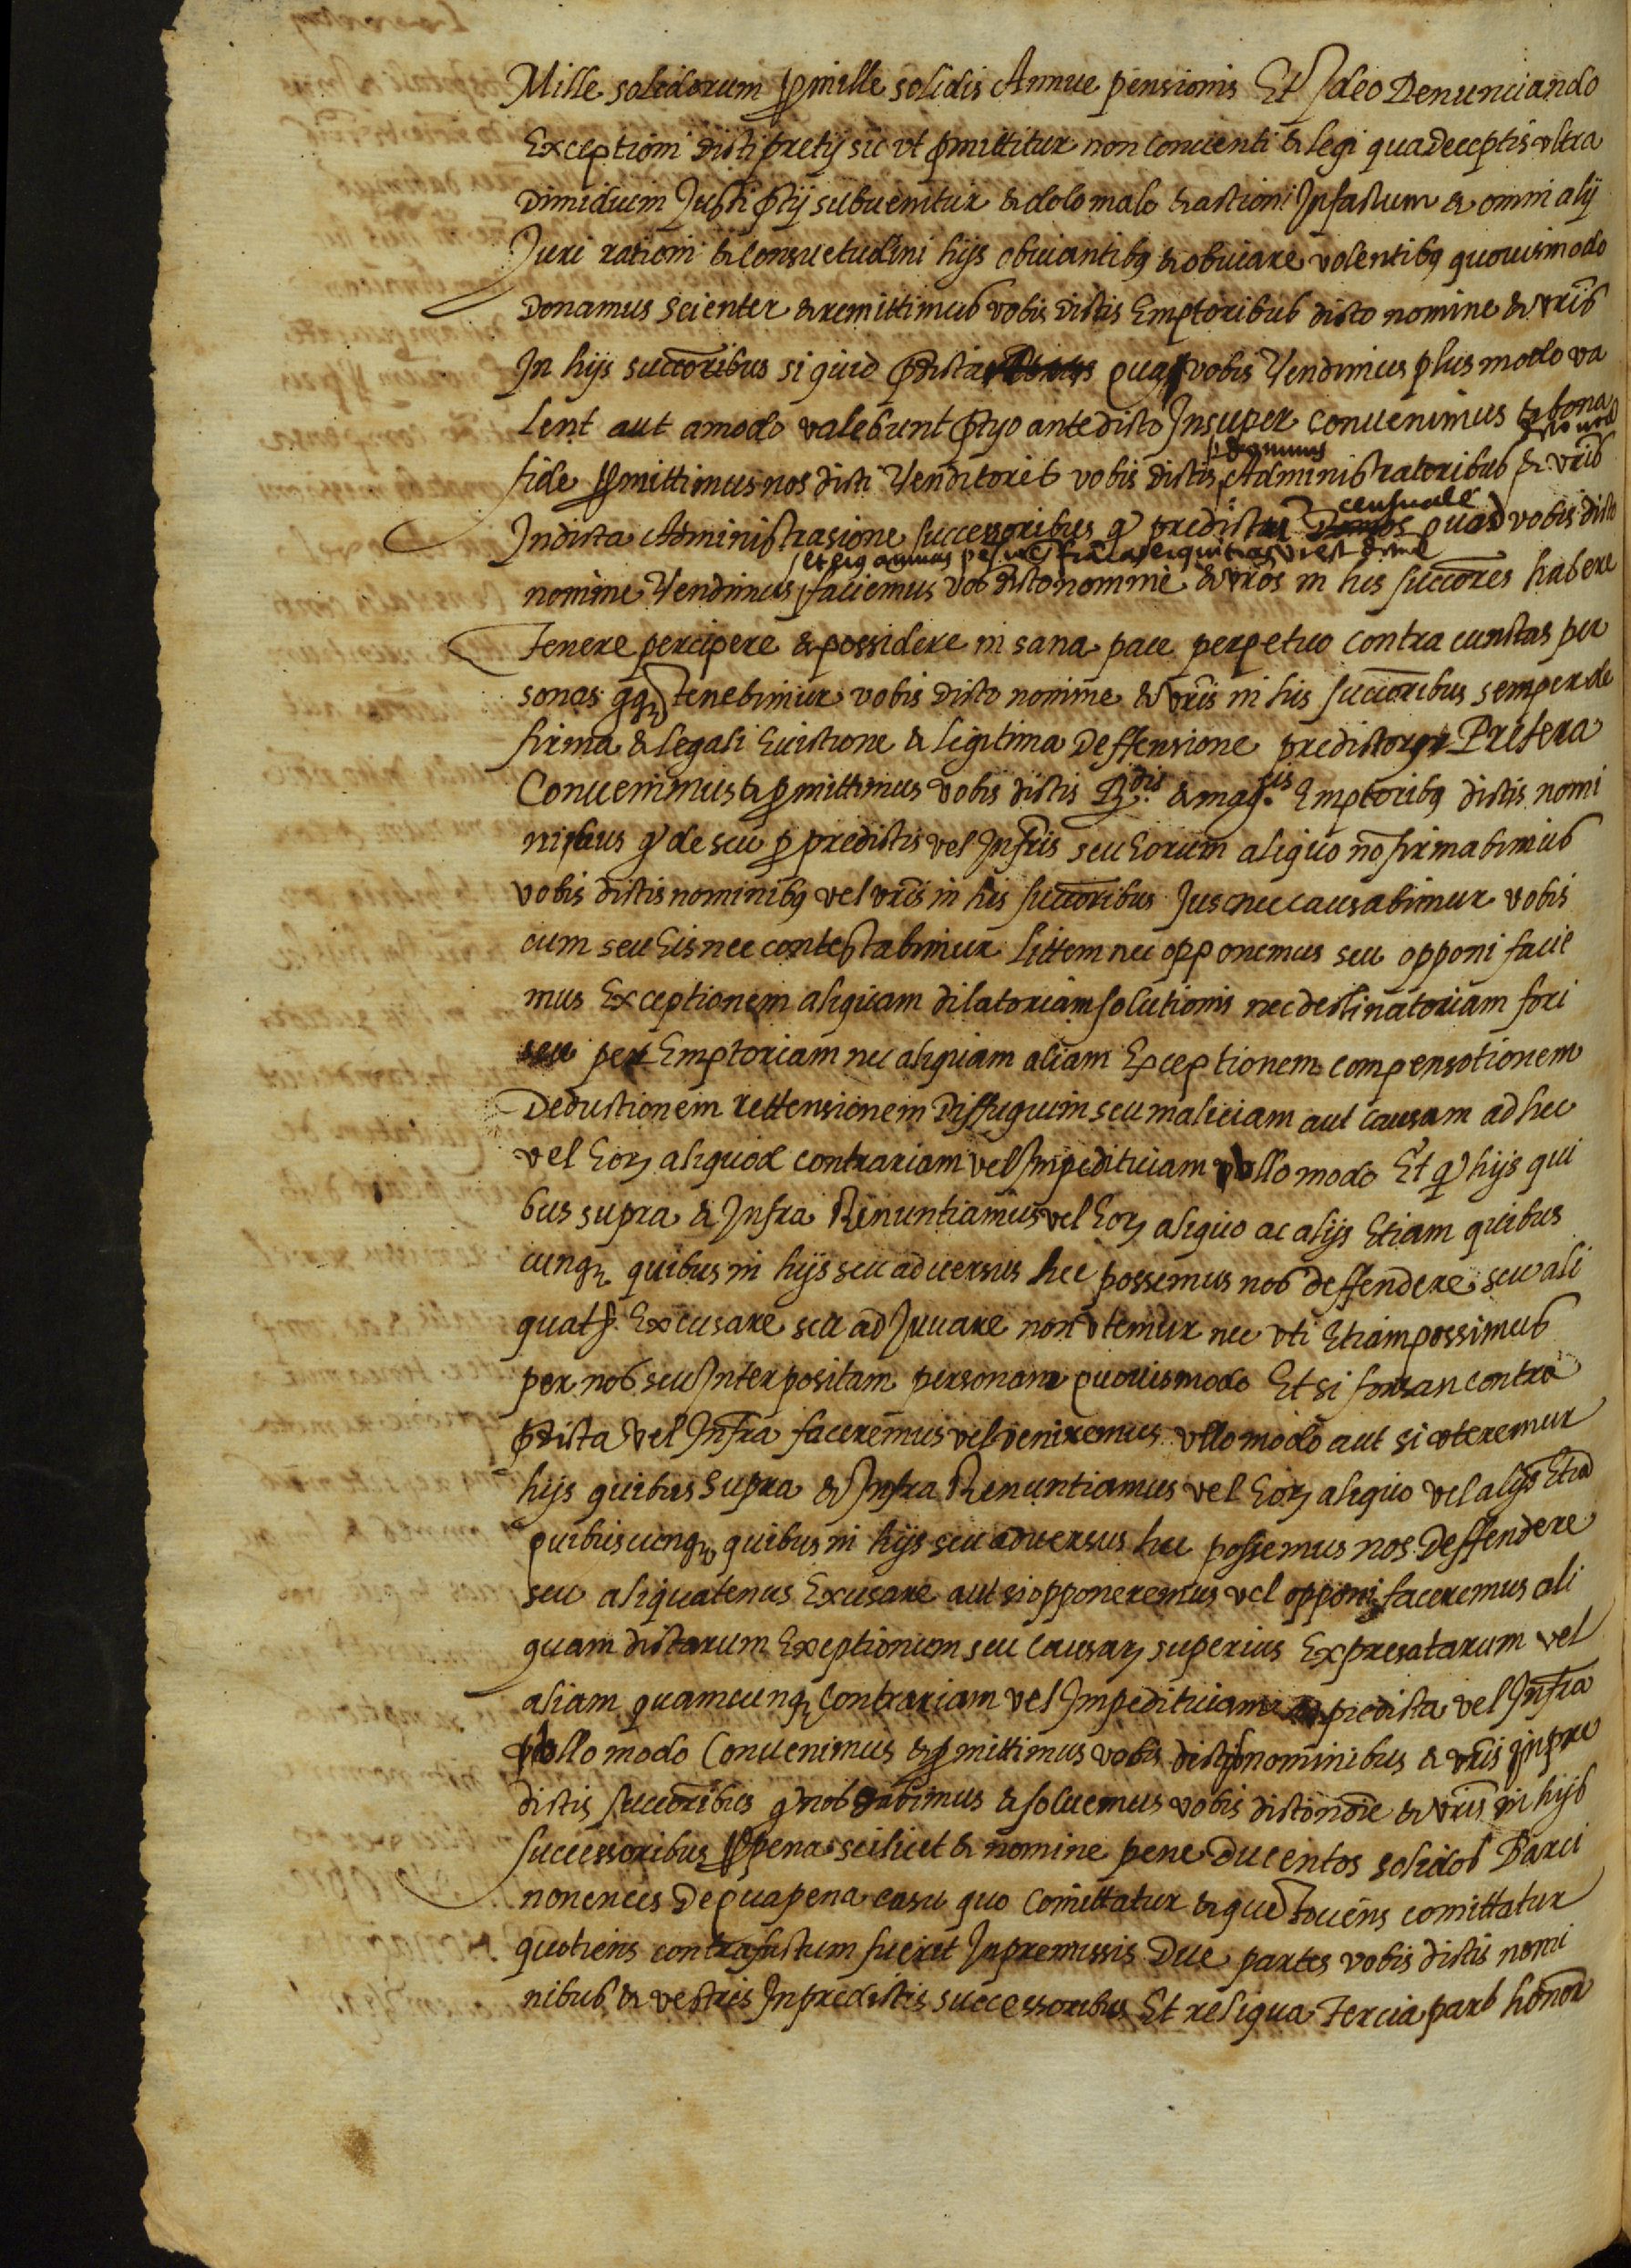 Mille solidorum p mille solidis Annue pensionis Et Ideo Denunciando
Exceptioni dicti pretij sic vt pmittitur non conuenti & legi qua deceptis vltra
dimidium Justi ptij subuenitur & dolo malo & actioni Infactum & omni alij
Juri rationi & consuetudini hijs obuiantibq & obuiare volentibq quouismodo
Donamus scienter & remittimus vobis dictis Emptoribus dicto nomine & vris
In hijs succoribus si quid pdicta que vobis Vendimus plus modo va
lent aut amodo valebunt ptyo antedicto Insuper conuenimus & bona
fide pmittimus nos dicti Venditores vobis dictis Administratoribus & vris
censuale
Indicta Administrasione successoribus q predictu quad vobis dicto
nomine Vendimus faciemus vob dicto nomine & vros in his succores habere
tenere percipere & possidere in sana pace perpetuo contra cunctas per
sonas qq tenebimur vobis dicto nomine & vris in his succoribus semper de
firma & legali Euictione & legitima deffensione predictorz Pretera
Conuenimus & pmittimus vobis dictis Rdis & magcis Emptoribq dictis nomi
nibus q de seu p predictis vel Infris seu Eorum aliquo no firmabimus
vobis dictis nominibq vel vris in his succoribus Jus nec causabimur vobis
cum seu Eis nec contestabimur littem nec opponemus seu opponi facie
mus Exceptionem aliquam dilatoriam solutionis nec declinatoriam fori
seu per Emptoriam nec aliquam aliam Exceptionem compensationem
Deductionem rettensionem diffugium seu maliciam aut causam ad hec
vel Eorz aliquod contrariam vel Impeditiuam vllo modo Et q hijs qui
bus supra & Infra Renuntiamus vel Eorz aliquo ac alijs Etiam quibus
cunqz quibus in hijs seu aduersus hec possemus nos deffendere seu ali
quats Excusare seu ad Juuare non vtemur nec vti Etiam possimus
per nos seu Interpositam personam quouismodo Et si forsan contra
pdicta vel Infra faceremus vel veniremus vllo modo aut si vteremur
hijs quibus supra & Infra Renuntiamus vel Eorz aliquo vel alijs Etia
quibuscunqz quibus in hijs seu aduersus hec possemus nos deffendere
seu aliquatenus Excusare aut si opponeremus vel opponi faceremus ali
quam dictarum Exceptionum seu causarz superius Expresatarum vel
aliam quamcunqz contrariam vel Impeditiuam predicta vel Infra
vllo modo Conuenimus & pmittimus vobis dictis nominibus & vris in pre
dictis succoribus q nos dabimus & soluemus vobis dicto noie & vris in hijs
successoribus p pena scilicet & nomine pene Ducentos solidos Barci
nonences De qua pena casu quo comittatur & que tociens comittatur
quotiens contrafactum fuerit Inpremissis Due partes vobis dictis nomi
nibus & vestris Inpredictis successoribus Et reliqua tercia pars honor